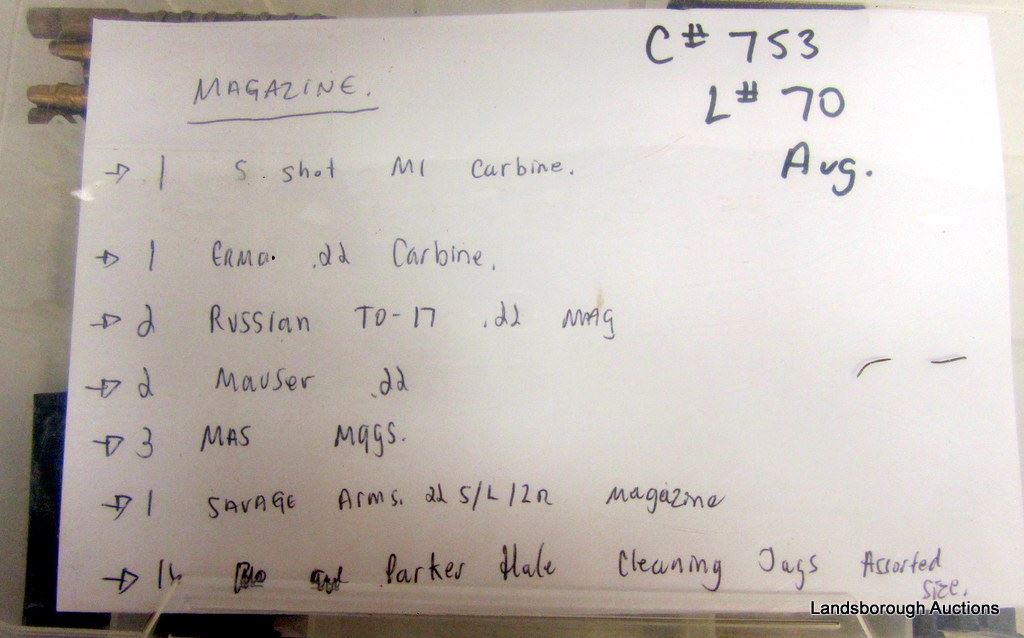 C# 753
MAGAZINE.
L# 70
Aug.
→ 1 5. shot M1 Carbine.
→ 1 ERMA. .22 Carbine.
→ 2 Russian TO-17 .22 MAG
→ 2 Mauser .22
→ 3 MAS Mags.
→ 1 SAVAGE Arms. 22 S/L/LR Magazine
→ Parker Hale Cleaning Jags Assorted
size.
Landsborough Auctions